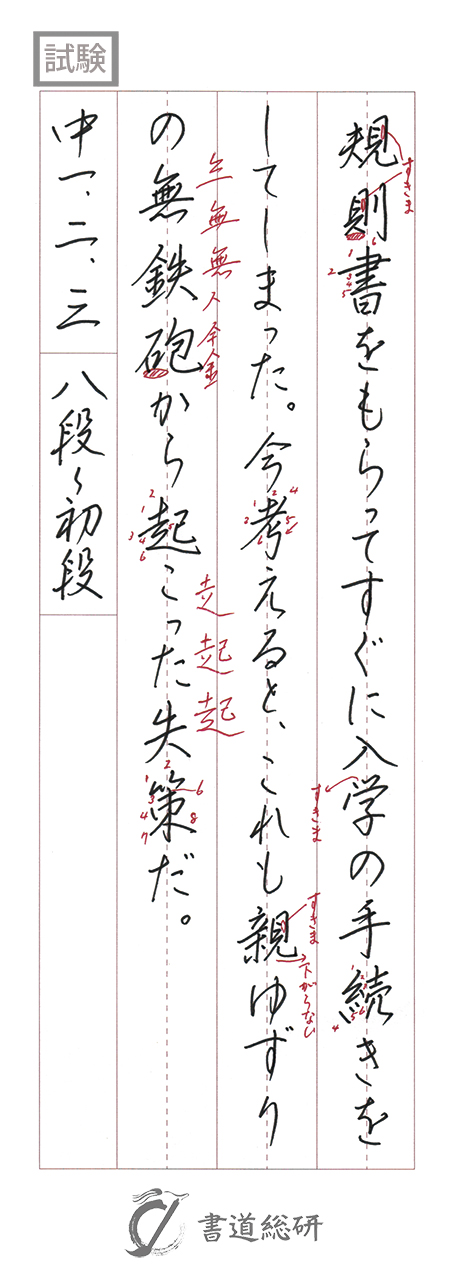 試験
規則書をもらってすぐに入学の手続きを
してしまった。今考えると、これも親ゆずり
の無鉄砲から起こった失策だ。
中一、二、三
八段〜初段
すきま
すきま
すきま
下がらない
書道総研